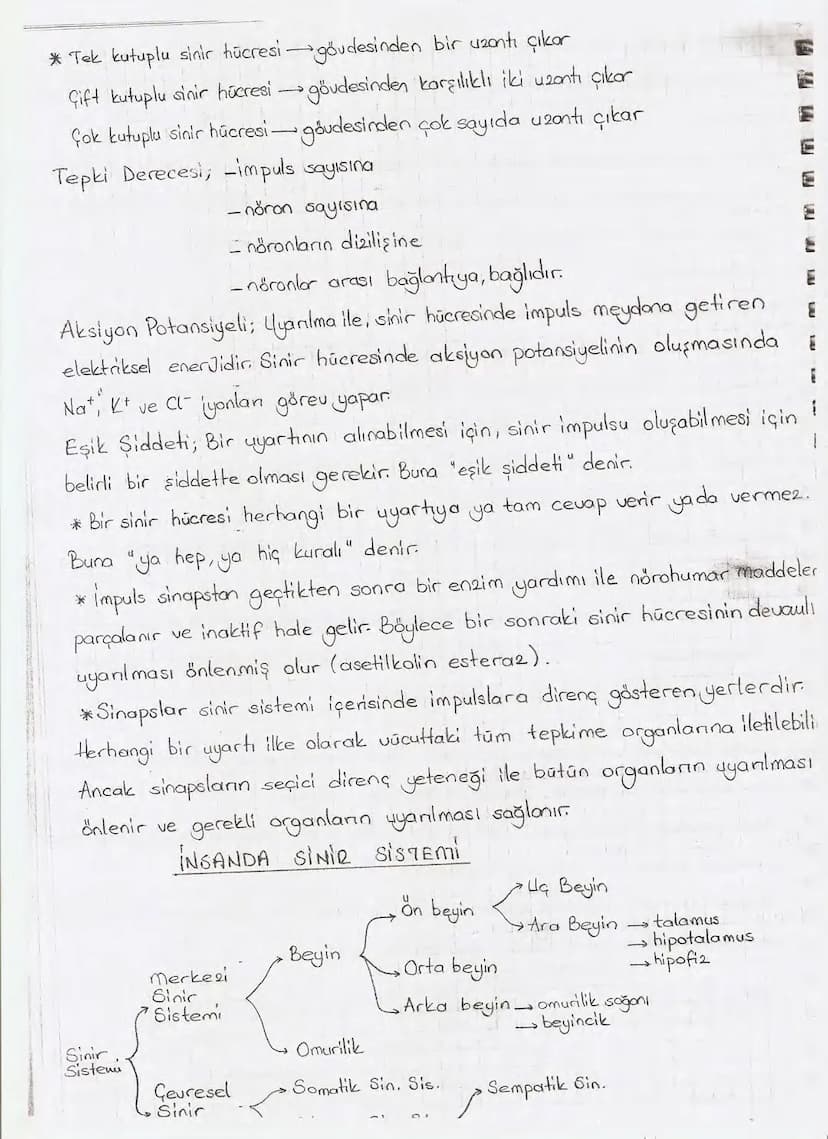 * Tek kutuplu sinir hücresi → gövdesinden bir uzantı çıkar
Çift kutuplu sinir hücresi → gövdesinden karşılıklı iki uzantı çıkar
Çok kutuplu sinir hücresi → gövdesinden çok sayıda uzantı çıkar
Tepki Derecesi; - impuls sayısına
- nöron sayısına
- nöronların dizilişine
- nöronlar arası bağlantıya, bağlıdır.
Aksiyon Potansiyeli; Uyarılma ile, sinir hücresinde impuls meydana getiren
elektriksel enerjidir. Sinir hücresinde aksiyon potansiyelinin oluşmasında
Na⁺, K⁺ ve Cl⁻ iyonları görev yapar.
Eşik Şiddeti; Bir uyartının alınabilmesi için, sinir impulsu oluşabilmesi için
belirli bir şiddette olması gerekir. Buna "eşik şiddeti" denir.
* Bir sinir hücresi herhangi bir uyartıya ya tam cevap verir yada vermez.
Buna "ya hep, ya hiç kuralı" denir.
* İmpuls sinapstan geçtikten sonra bir enzim yardımı ile nörohumar maddeler
parçalanır ve inaktif hale gelir. Böylece bir sonraki sinir hücresinin devamlı
uyarılması önlenmiş olur (asetilkolin esteraz).
* Sinapslar sinir sistemi içerisinde impulslara direnç gösteren yerlerdir.
Herhangi bir uyartı ilke olarak vücuttaki tüm tepkime organlarına iletilebili
Ancak sinapsların seçici direnç yeteneği ile bütün organların uyarılması
önlenir ve gerekli organların uyarılması sağlanır.
İNSANDA SİNİR SİSTEMİ
Sinir Sistemi
Merkezi
Sinir
Sistemi
Beyin
Ön beyin
→ Uç Beyin
→ Ara Beyin → talamus
→ hipotalamus
→ hipofiz
Orta beyin
Arka beyin → omurilik soğanı
→ beyincik
Omurilik
Çevresel
Sinir
→ Somatik Sin. Sis.
→ Sempatik Sin.